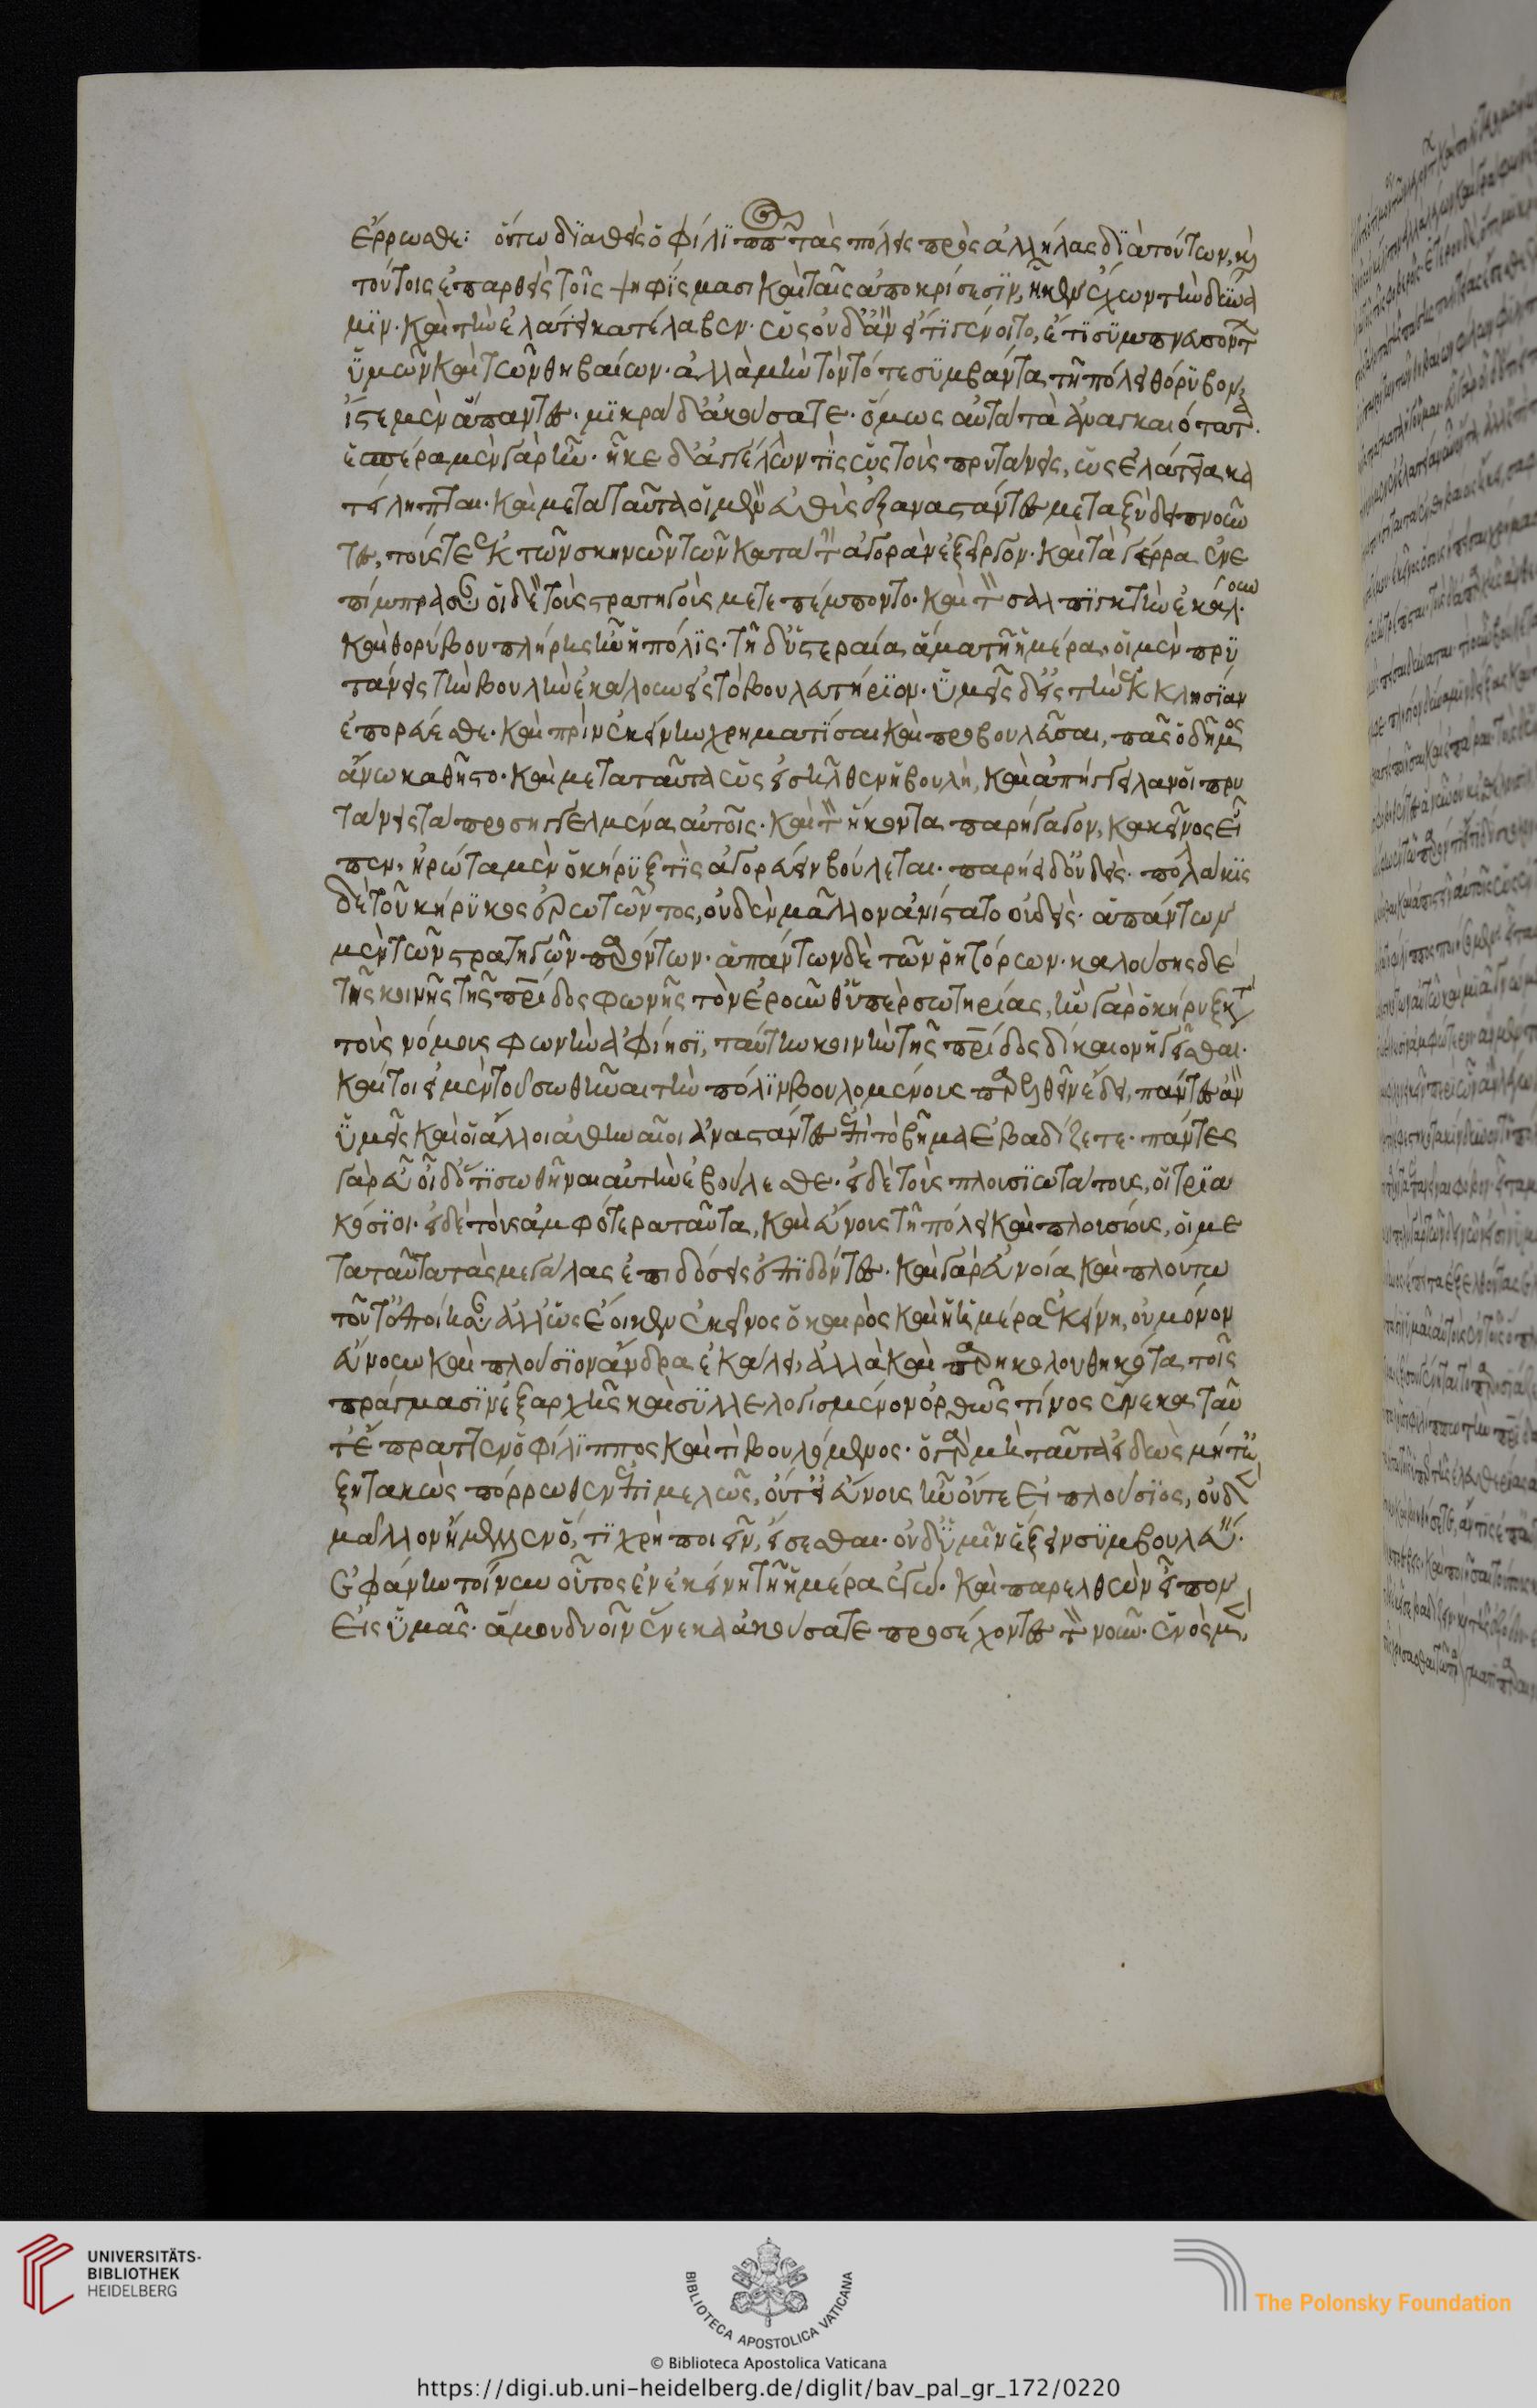 ἔρρωσθε: οὕτω διαθεὶς ὁ φίλιππος τὰς πόλεις πρὸς ἀλλήλας διὰ τούτων, καὶ
τούτοις ἐπαρθεὶς τοῖς ψηφίσμασι καὶ ταῖς ἀποκρίσεσιν, ἧκεν ἔχων τὴν δύνα
μιν. καὶ τὴν ἐλάτειαν κατέλαβεν. ὡς οὐδ' ἂν εἴ τι γένοιτο, ἔτι συμπνευσόντων
ὑμῶν καὶ τῶν θηβαίων. ἀλλὰ μὴν τὸν τότε συμβάντα τῇ πόλει θόρυβον,
ἴστε μὲν ἅπαντες. μικρὰ δ' ἀκούσατε. ὅμως αὐτὰ τὰ ἀναγκαιότατα.
ἑσπέρα μὲν γὰρ ἦν. ἧκε δ' ἀγγέλων τὶς ὡς τοὺς πρυτάνεις, ὡς ἐλάτεια κα
τείληπται. καὶ μετὰ ταῦτα οἱ μὲν εὐθὺς ἐξαναστάντες μεταξὺ δειπνοῦν
τες, τούς τε ἐκ τῶν σκηνῶν τῶν κατὰ τὴν ἀγορὰν ἐξεῖργον. καὶ τὰ γέρρα ἐνε
πίμπρασαν οἱ δὲ τοὺς στρατηγοὺς μετεπέμποντο. καὶ τὸν σαλπιγκτὴν ἐκάλουν.
καὶ θορύβου πλήρης ἦν ἡ πόλις. τῇ δ' ὑστεραία ἅμα τῇ ἡμέρα, οἱ μὲν πρυ
τάνεις τὴν βουλὴν ἐκάλουν εἰς τὸ βουλευτήριον. ὑμεῖς δ' εἰς τὴν ἐκκλησίαν
ἐπορεύεσθε. καὶ πρὶν ἐκείνην χρηματίσαι καὶ προβουλεῦσαι, πᾶς ὁ δῆμος
ἄνω καθῆστο. καὶ μετὰ ταῦτα ὡς εἰσῆλθεν ἡ βουλὴ, καὶ ἀπήγγειλαν οἱ πρυ
τάνεις τὰ προσηγγελμένα αὐτοῖς. καὶ τὸν ἥκοντα παρήγαγον, κἀκεῖνος εἶ
πεν, ἠρώτα μὲν ὁ κήρυξ τὶς ἀγορεύειν βούλεται. παρήει δ' οὐδείς. πολάκις
δὲ τοῦ κήρυκος ἐρωτῶντος, οὐδὲν μᾶλλον ἀνίστατο οὐδείς. ἁπάντων
μὲν τῶν στρατηγῶν παρόντων. ἁπάντων δὲ τῶν ῥητόρων. καλούσης δὲ
τῆς κοινῆς τῆς πρίδος φωνῆς τὸν ἐροῦνθ' ὑπὲρ σωτηρίας, ἣν γὰρ ὁ κήρυξ κατὰ
τοὺς νόμους φωνὴν ἀφίησι, ταύτην κοινὴν τῆς πρίδος δίκαιον ἡγεῖσθαι.
καίτοι εἰ μὲν τοὺς σωθῆναι τὴν πόλιν βουλομένους παρελθεῖν ἔδει, πάντες ἂν
ὑμεῖς καὶ οἱ ἄλλοι ἀθηναῖοι ἀναστάντες ἐπὶ τὸ βῆμα ἐβαδίζετε. πάντες
γὰρ εὖ οἶδ' ὅτι σωθῆναι αὐτὴν ἐβούλεσθε. εἰ δὲ τοὺς πλουσιωτάτους, οἱ τρια
κόσιοι. εἰ δὲ τοὺς ἀμφότερα ταῦτα, καὶ εὔνους τῇ πόλει καὶ πλουσίους, οἱ με
τὰ ταῦτα τὰς μεγάλας ἐπιδόσεις ἐπιδόντες. καὶ γὰρ εὐνοία καὶ πλούτω
τοῦτ' ἐποίησαν ἀλλ' ὡς ἔοικεν ἐκεῖνος ὁ καιρὸς καὶ ἡ ἡμέρα ἐκείνη, οὐ μόνον
εὔνουν καὶ πλούσιον ἄνδρα ἐκάλει, ἀλλὰ καὶ παρηκολουθηκότα τοῖς
πράγμασιν ἐξαρχῆς καὶ συλλελογισμένον ὀρθῶς τίνος ἕνεκα ταῦ
τ' ἔπραττεν ὁ φίλιππος καὶ τὶ βουλόμενος. ὁ γὰρ μὴ ταῦτα εἰδὼς μήτ' ἐ
ξητακὼς πόρρωθεν ἐπιμελῶς, οὔτ' εἰ εὔνους ἦν οὔτε εἰ πλούσιος, οὐδὲν
μᾶλλον ἤμελλεν ὅ, τι χρὴ ποιεῖν, εἴσεσθαι. οὐδ' ὑμῖν ἕξειν συμβουλεύειν.
ἐφάνην τοίνυν οὗτος ἐν ἐκείνη τῇ ἡμέρα ἐγώ. καὶ παρελθὼν εἶπον
εἰς ὑμᾶς. ἅ μου δυοῖν ἕνεκα ἀκούσατε προσέχοντες τὸν νοῦν. ἑνὸς μὲν,
UNIVERSITÄTS-
BIBLIOTHEK
HEIDELBERG
BIBLIOTECA APOSTOLICA VATICANA
The Polonsky Foundation
© Biblioteca Apostolica Vaticana
https://digi.ub.uni-heidelberg.de/diglit/bav_pal_gr_172/0220